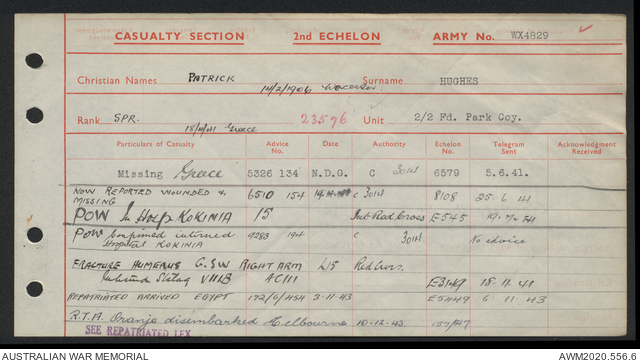 CASUALTY SECTION 2nd ECHELON ARMY No. WX4829
Christian Names PATRICK Surname HUGHES
14/2/1906 Worcester
Rank SPR. 23576 Unit 2/2 Fd. Park Coy.
18/4/41 Greece
Particulars of Casualty Advice No. Date Authority Echelon No. Telegram Sent Acknowledgment Received
Missing Greece 5326 134 N.D.G. C 301H 6579 5.6.41.
NOW REPORTED WOUNDED & 6510 154 C 301H 8108 25.6.41
MISSING
POW In Hosp KOKINIA 15 Int Red Cross E545 19.7.41
POW Confirmed interned 9283 194 C 301H No advice
Hospital KOKINIA
FRACTURE HUMERUS G.S.W RIGHT ARM L15 Red Cross.
Stalag VIIIB AC111 E3149 18.11.41
REPATRIATED ARRIVED EGYPT 172/6/454 3.11.43 E5449 6.11.43
R.T.A. Oranje disembarked Melbourne 10.12.43. 157/47
SEE REPATRIATED LEX
AUSTRALIAN WAR MEMORIAL AWM2020.556.6